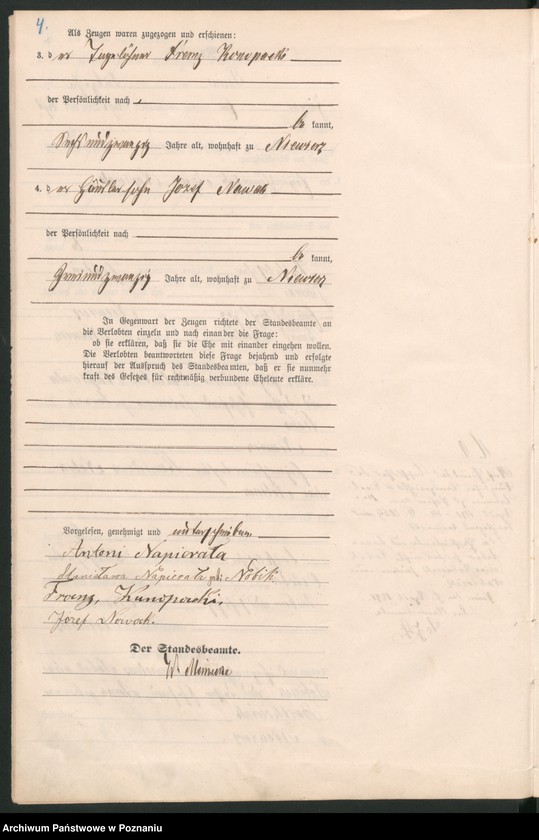 4.
Als Zeugen waren zugezogen und erschienen:
3. der Tagelöhner Franz Konopacki
der Persönlichkeit nach
be kannt,
Sechsundzwanzig Jahre alt, wohnhaft zu Niewierz
4. der Häuslersohn Jozef Nowak
der Persönlichkeit nach
be kannt,
Jahre alt, wohnhaft zu Niewierz
In Gegenwart der Zeugen richtete der Standesbeamte an
die Verlobten einzeln und nach einander die Frage:
ob sie erklären, daß sie die Ehe mit einander eingehen wollen.
Die Verlobten beantworteten diese Frage bejahend und erfolgte
hierauf der Ausspruch des Standesbeamten, daß er sie nunmehr
kraft des Gesetzes für rechtmäßig verbundene Eheleute erkläre.
Vorgelesen, genehmigt und unterschrieben
Antoni Napierała
Stanisława Napierała geb. Nobik
Franz, Kunopacki,
Józef Nowak.
Der Standesbeamte.
Archiwum Państwowe w Poznaniu